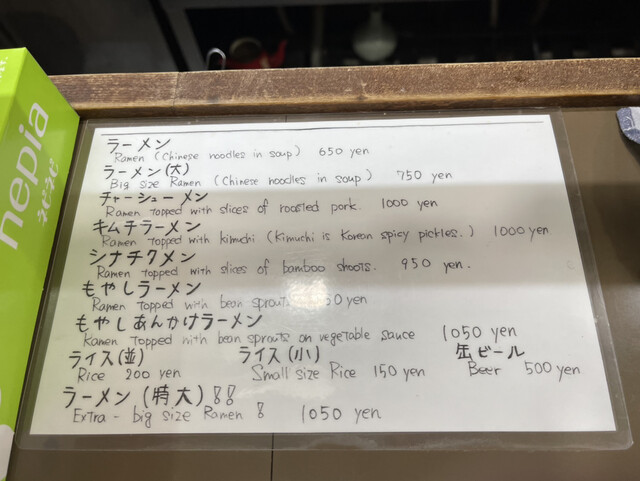 nepia
ネピネピ
ラーメン
Ramen (Chinese noodles in soup) 650 yen
ラーメン(大)
Big size Ramen (Chinese noodles in soup) 750 yen
チャーシューメン
Ramen topped with slices of roasted pork. 1000 yen
キムチラーメン
Ramen topped with kimchi (Kimuchi is Korean spicy pickles.) 1000 yen
シナチクメン
Ramen topped with slices of bamboo shoots. 950 yen.
もやしラーメン
Ramen topped with bean sprouts yen
もやしあんかけラーメン
Ramen topped with bean sprouts on vegetable sauce 1050 yen
ライス(並) ライス(小) 缶ビール
Rice 200 yen Small size Rice 150 yen Beer 500 yen
ラーメン(特大)!!
Extra-big size Ramen! 1050 yen